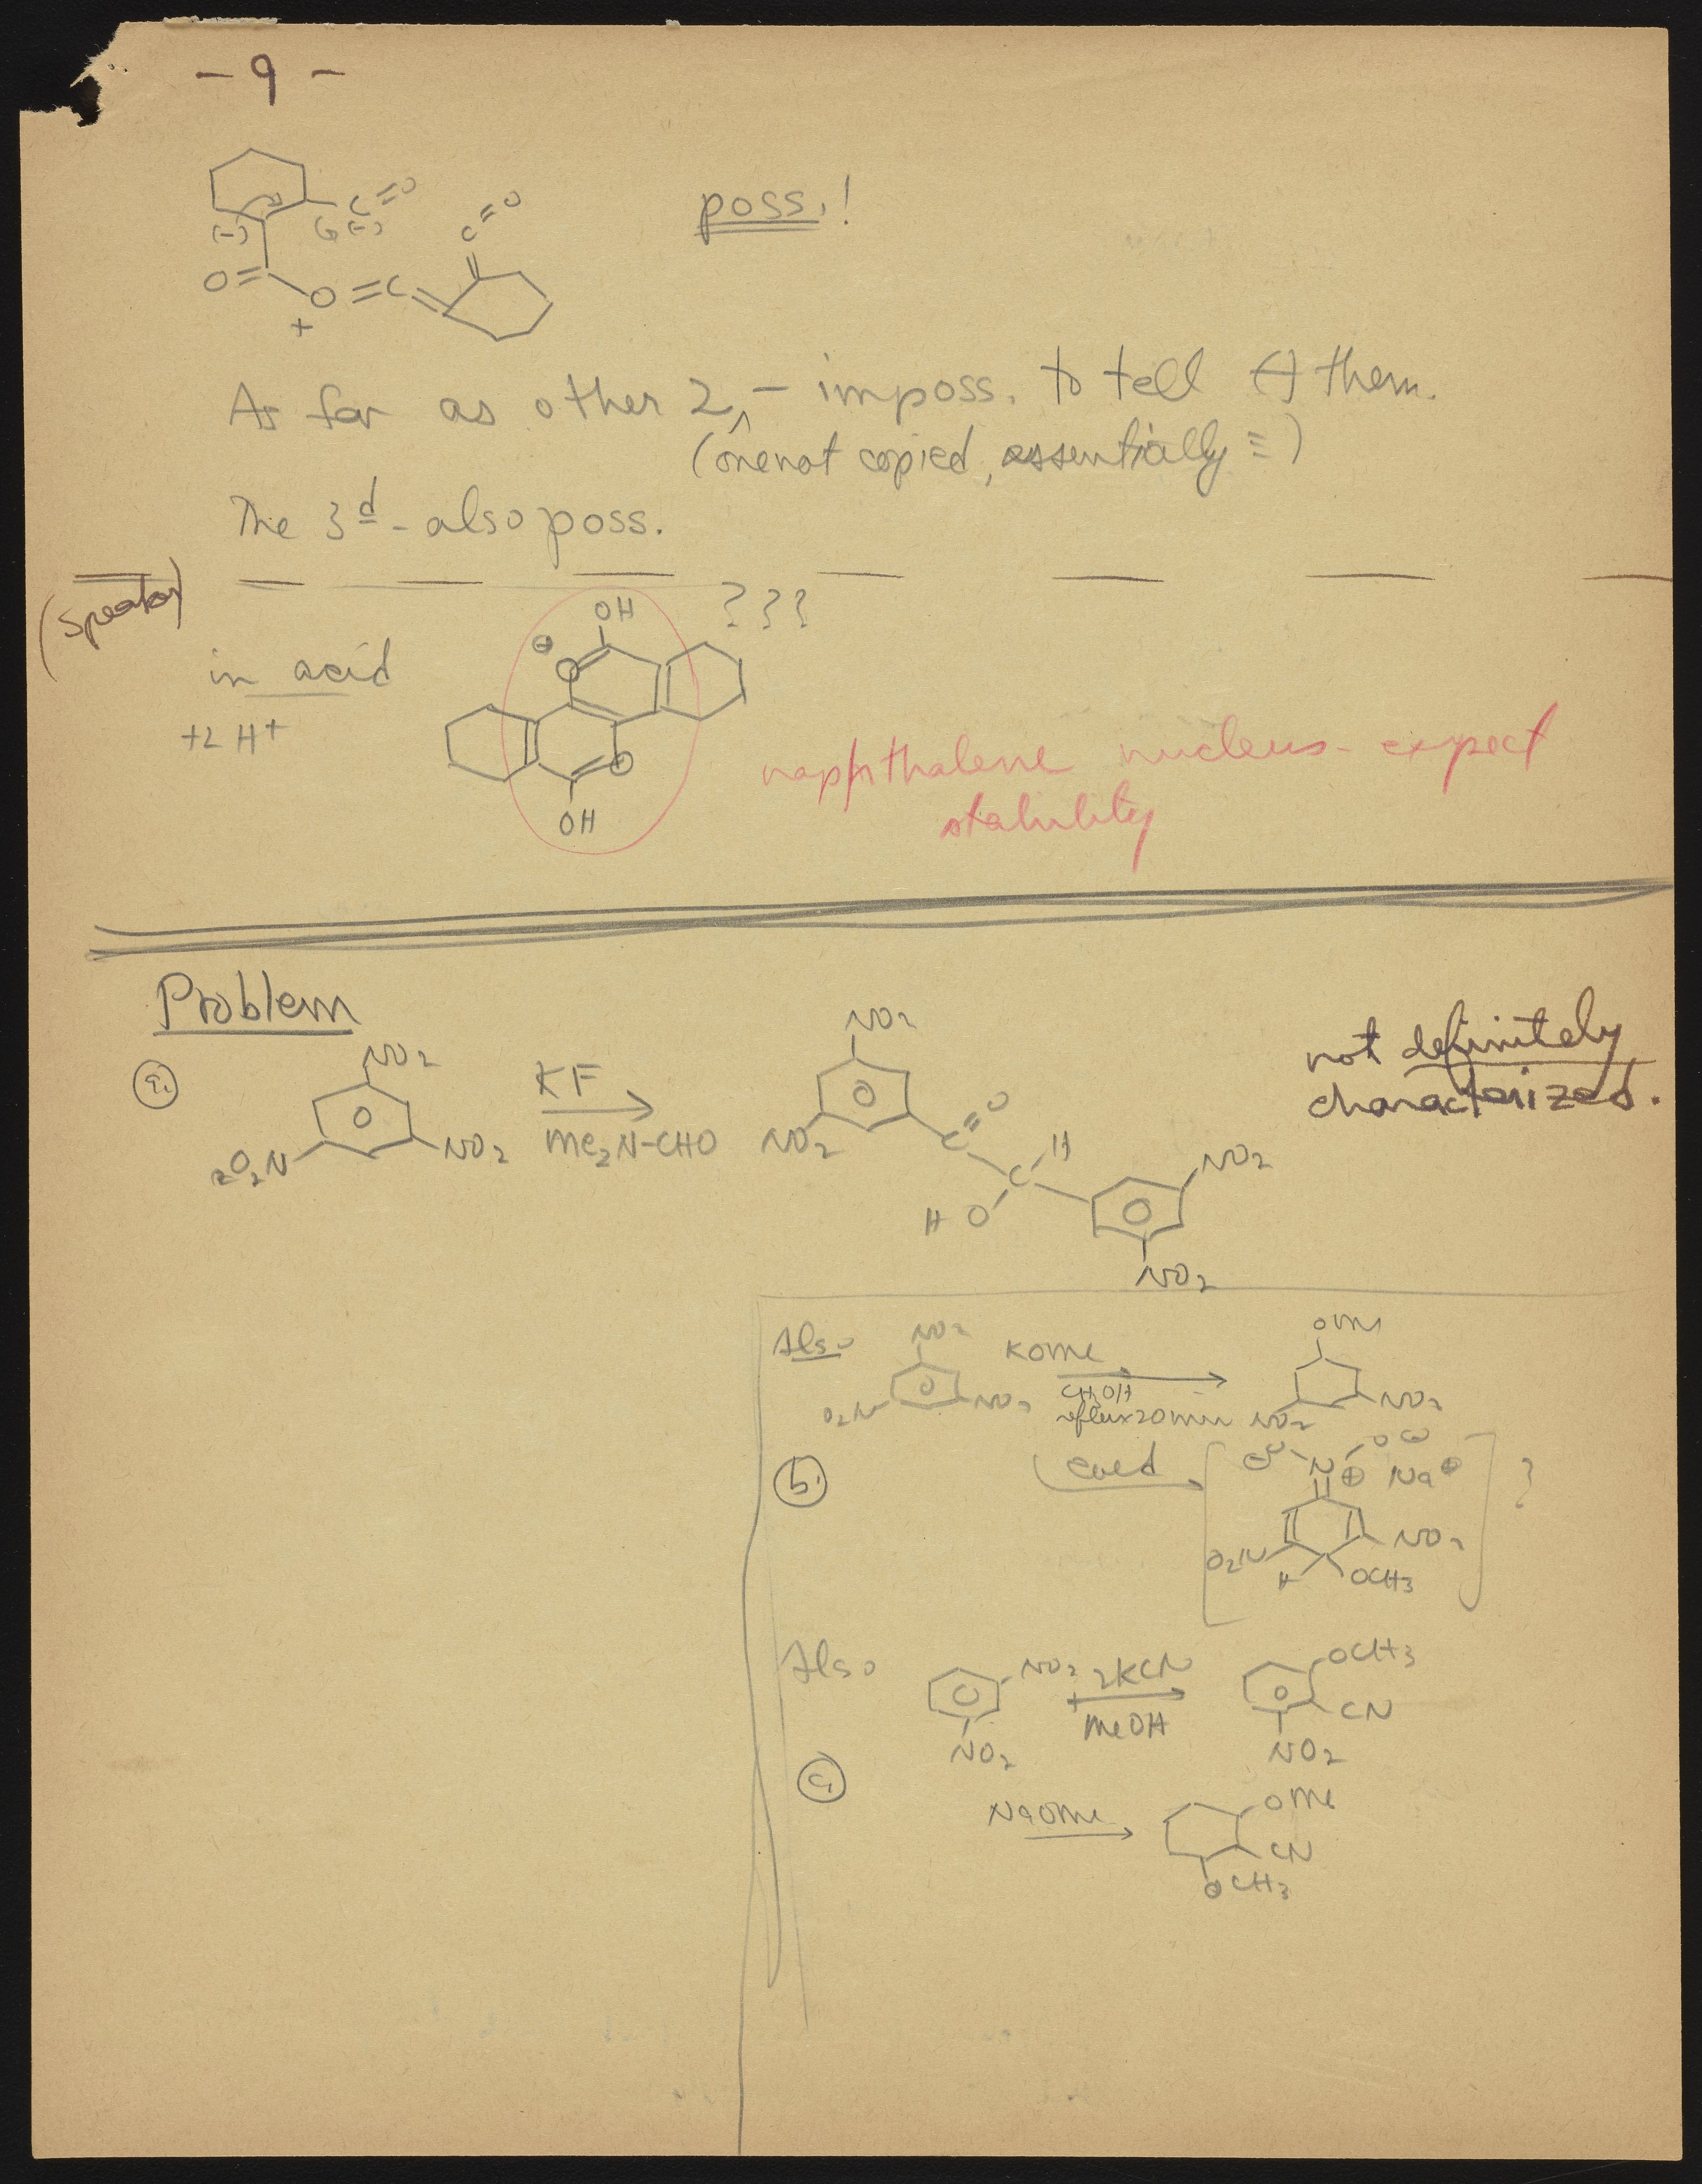 - 9 -
C=O
(-)
(-)
C=O
O=
O=C
+
poss.!
As far as other 2, - imposs. to tell (-) them.
(one not copied, essentially ≡)
The 3d - also poss.
(Speaker)
in acid
+2 H+
OH
⊕
O
O
OH
???
naphthalene nucleus - expect
stability
Problem
a.
NO2
O2N
NO2
KF
Me2N-CHO
NO2
NO2
C=O
C H
HO
NO2
NO2
not definitely
characterized.
Also
NO2
O2N
NO2
KOMe
CH3OH
reflux 20 min
OMe
NO2
NO2
b.
N ⊕
Na⊕
O2N
NO2
H
OCH3
?
Also
NO2
NO2
2KCN
MeOH
OCH3
CN
NO2
c.
NaOMe
OMe
CN
OCH3